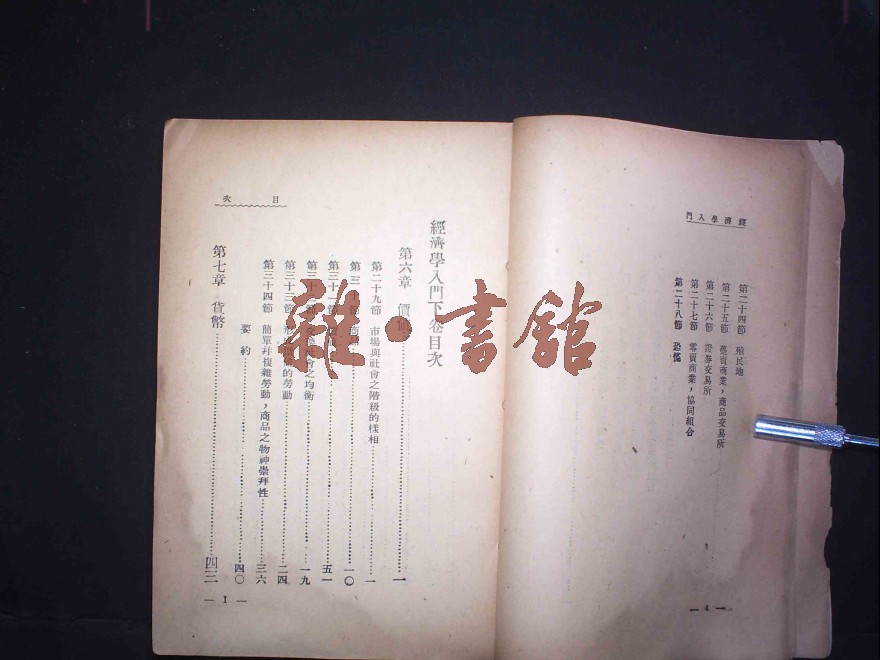 經濟學入門
第二十四節 殖民地
第二十五節 躉賣商業，商品交易所
第二十六節 證券交易所
第二十七節 零賣商業，協同組合
第二十八節 恐慌
— 4 —
目 次
經濟學入門下卷目次
第六章 價値……一
第二十九節 市場與社會之階級的樣相……一
第三十節 商……一〇
第三十一節……五一
第三十二節 社會之均衡……一九
第三十三節 的勞動……二四
第三十四節 簡單幷複雜勞動，商品之物神崇拜性……三六
要約……四〇
第七章 貨幣……四三
— I —
雜·書館